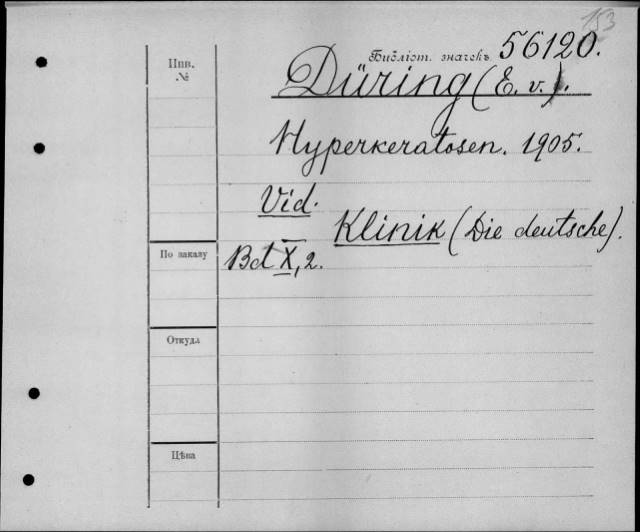 153
Инв.
№
Библіот. значекъ 56120.
Düring (E. v.).
Hyperkeratosen. 1905.
Vid.
Klinik (Die deutsche).
По заказу
Bd X, 2.
Откуда
Цѣна